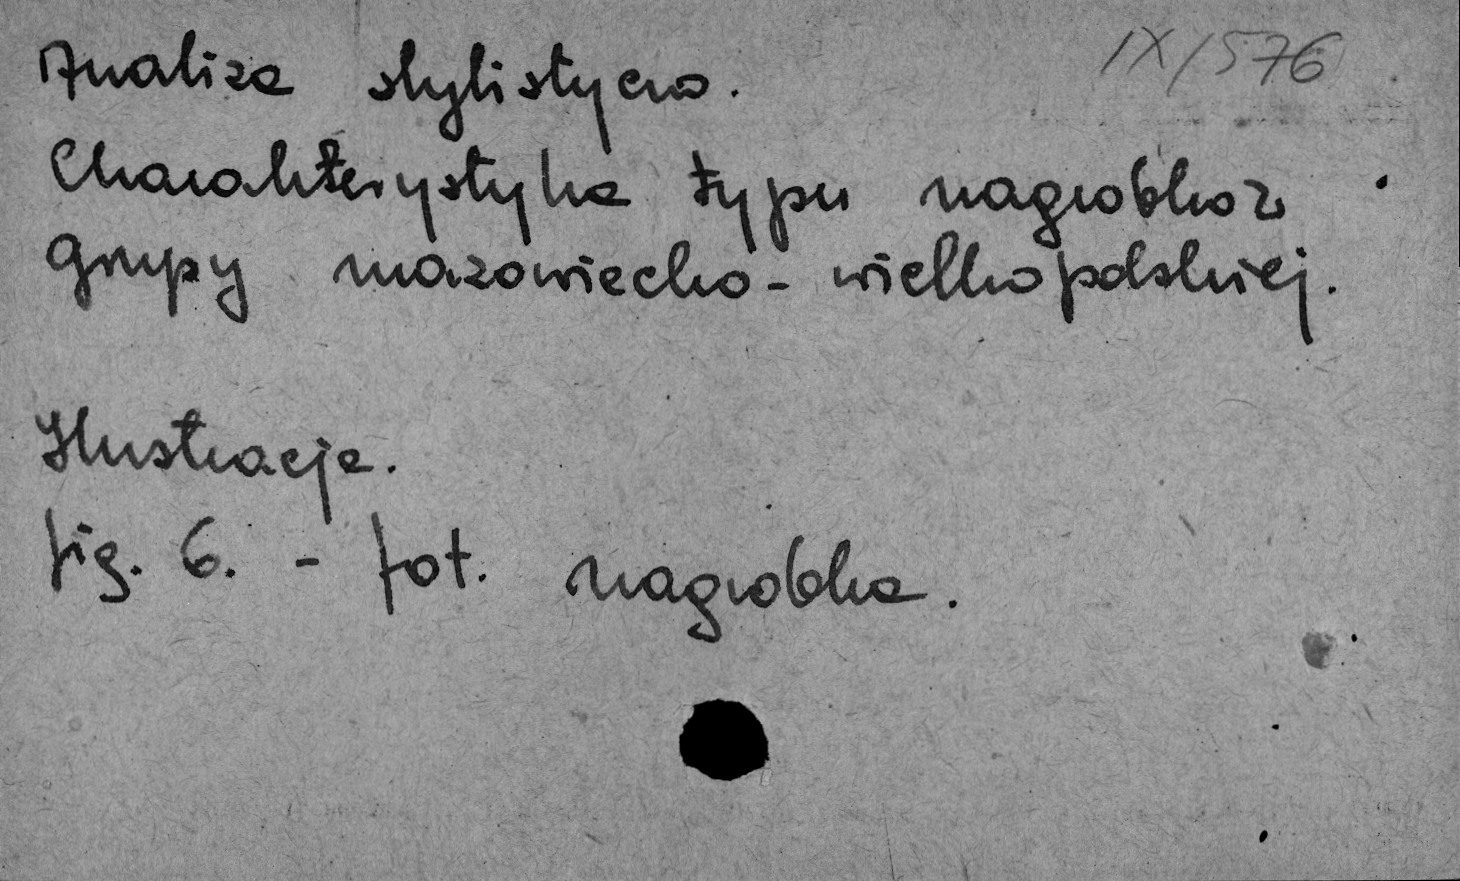 IX/576
Analiza stylistyczna.
Charakterystyka typu nagrobków z
grupy mazowiecko-wielkopolskiej.
Ilustracje.
fig. 6. - fot. nagrobka.